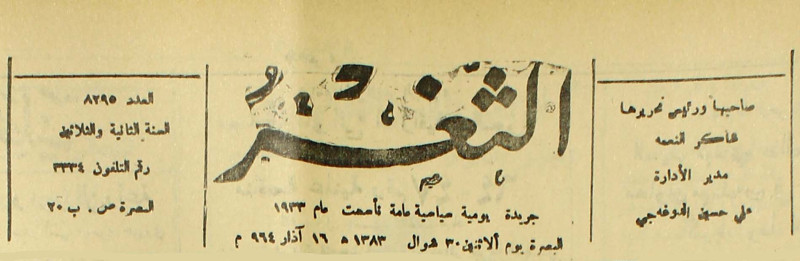 صاحبها ورئيس تحريرها
شاكر النعمه
مدير الأدارة
علي حسين
الثغر
جريدة يومية سياسية عامة تأسست عام ١٩٣٣
البصرة يوم ألاثنين ٣٠ شوال ١٣٨٣ ه ١٦ آذار ٩٦٤ م
العدد ٨٢٩٥
السنة الثانية والثلاثين
رقم التلفون ٣٣٣٤
البصرة ص . ب ٢٥